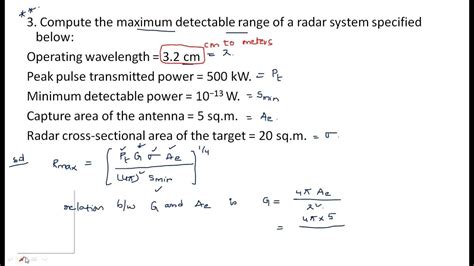 **
3. Compute the maximum detectable range of a radar system specified
below:
cm to meters
Operating wavelength = 3.2 cm = λ.
Peak pulse transmitted power = 500 kW. = Pt
Minimum detectable power = 10⁻¹³ W. = Smin
Capture area of the antenna = 5 sq.m. = Ae
Radar cross-sectional area of the target = 20 sq.m. = σ.
Rmax = [Pt G σ Ae / (4π)² Smin]^1/4
relation b/w G and Ae is G = 4π Ae / λ²
= 4π×5